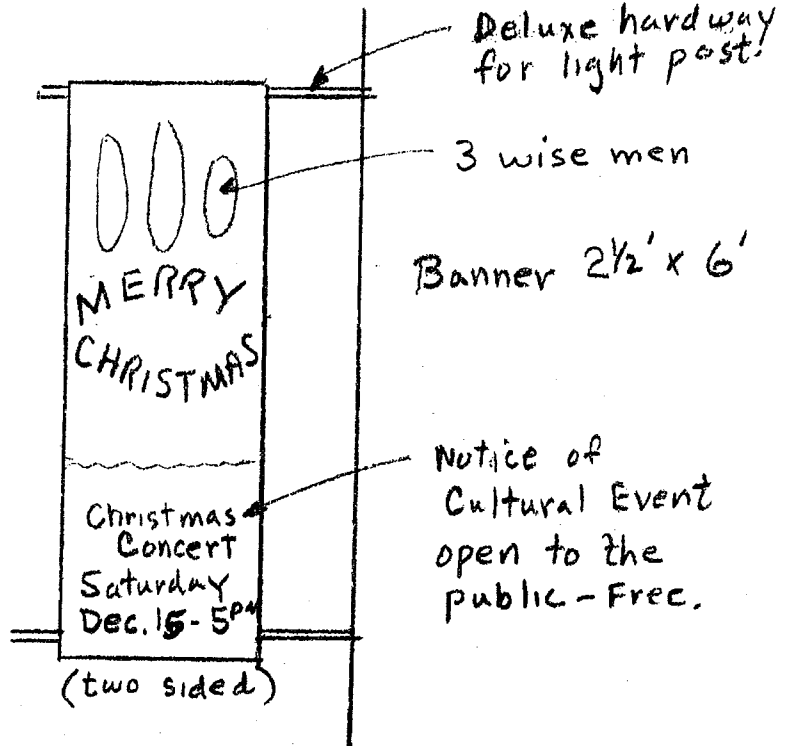 Deluxe hardway
for light post.
3 wise men
Banner 2½' x 6'
MERRY
CHRISTMAS
Notice of
Cultural Event
open to the
public - Free.
Christmas
Concert
Saturday
Dec. 15 - 5PM
(two sided)